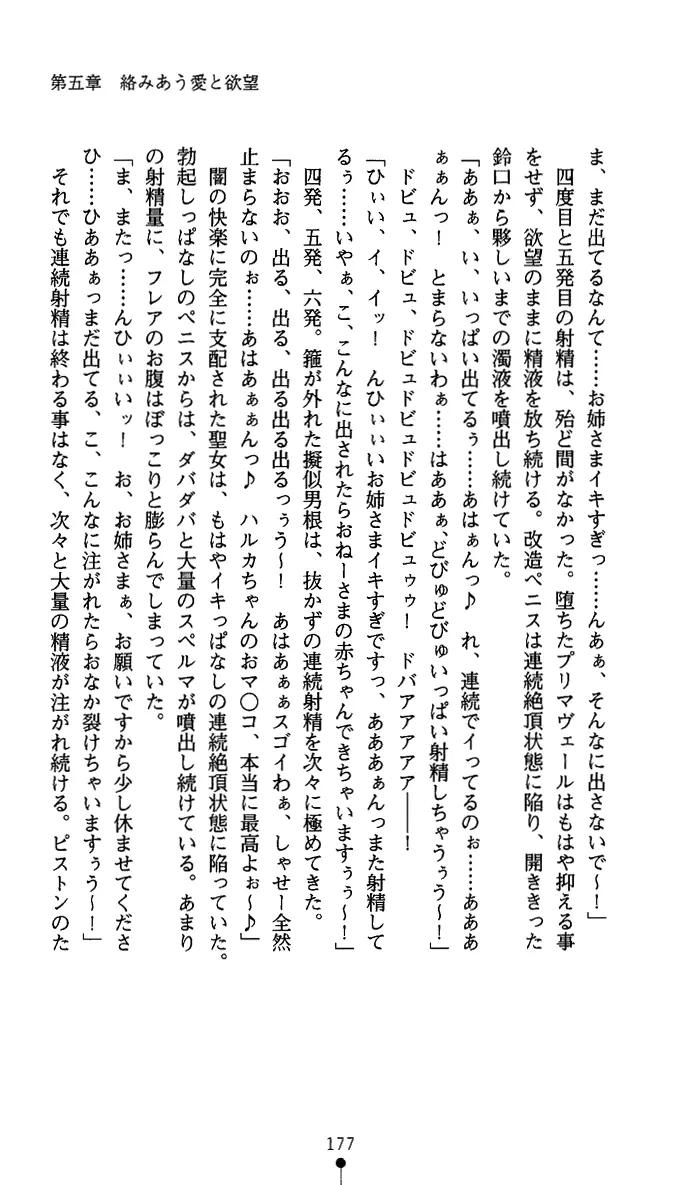 第五章　絡みあう愛と欲望
ま、まだ出てるなんて……お姉さまイキすぎっ……んあぁ、そんなに出さないで〜！」
　四度目と五発目の射精は、殆ど間がなかった。堕ちたプリマヴェールはもはや抑える事
をせず、欲望のままに精液を放ち続ける。改造ペニスは連続絶頂状態に陥り、開ききった
鈴口から夥しいまでの濁液を噴出し続けていた。
「ああぁ、い、いっぱい出てるぅ……あはぁんっ♪　れ、連続でイってるのぉ……あああ
ぁぁんっ！　とまらないわぁ……はああぁ、どぴゅどぴゅいっぱい射精しちゃうぅう〜！」
　ドビュ、ドビュ、ドビュドビュドビュゥゥ！　ドバアアアアア――！
「ひぃい、イ、イッ！　んひぃぃいお姉さまイキすぎですっ、あああぁんっまた射精して
るぅ……いやぁ、こ、こんなに出されたらおねーさまの赤ちゃんできちゃいますぅぅ〜！」
　四発、五発、六発。箍が外れた擬似男根は、抜かずの連続射精を次々に極めてきた。
「おおお、出る、出る、出る出る出るっぅう〜！　あはあぁぁスゴイわぁ、しゃせー全然
止まらないのぉ……あはあぁぁんっ♪　ハルカちゃんのおマ〇コ、本当に最高よぉ〜♪」
　闇の快楽に完全に支配された聖女は、もはやイキっぱなしの連続絶頂状態に陥っていた。
勃起しっぱなしのペニスからは、ダバダバと大量のスペルマが噴出し続けている。あまり
の射精量に、フレアのお腹はぽっこりと膨らんでしまっていた。
「ま、またっ……んひぃぃいッ！　お、お姉さまぁ、お願いですから少し休ませてくださ
ひ……ひああぁっまだ出てる、こ、こんなに注がれたらおなか裂けちゃいますぅう〜！」
　それでも連続射精は終わる事はなく、次々と大量の精液が注がれ続ける。ピストンのた
177